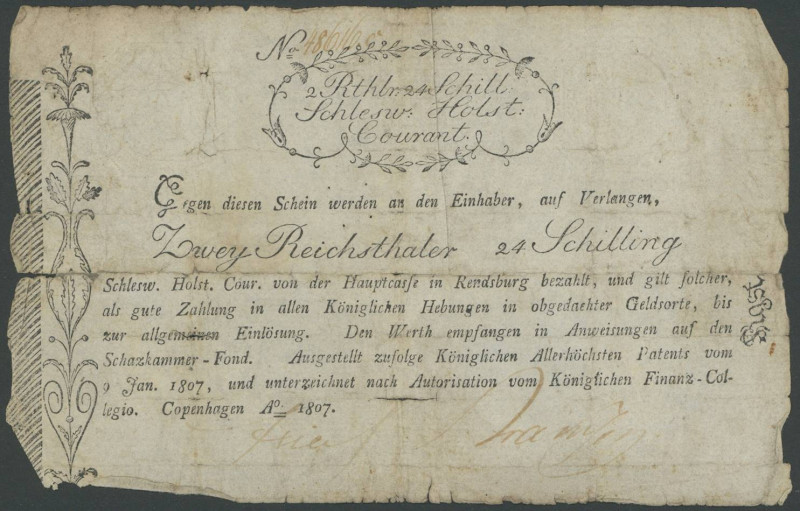 No
2 Rthlr: 24 Schill:
Schlesw: Holst:
Courant.
Gegen diesen Schein werden an den Einhaber, auf Verlangen,
Zwey Reichsthaler 24 Schilling
Schlesw. Holst. Cour. von der Hauptcasse in Rendsburg bezahlt, und gilt solcher,
als gute Zahlung in allen Königlichen Hebungen in obgedachter Geldsorte, bis
zur allgemeinen Einlösung. Den Werth empfangen in Anweisungen auf den
Schazkammer-Fond. Ausgestellt zufolge Königlichen Allerhöchsten Patents vom
9 Jan. 1807, und unterzeichnet nach Autorisation vom Königlichen Finanz-Col-
legio. Copenhagen Ao 1807.